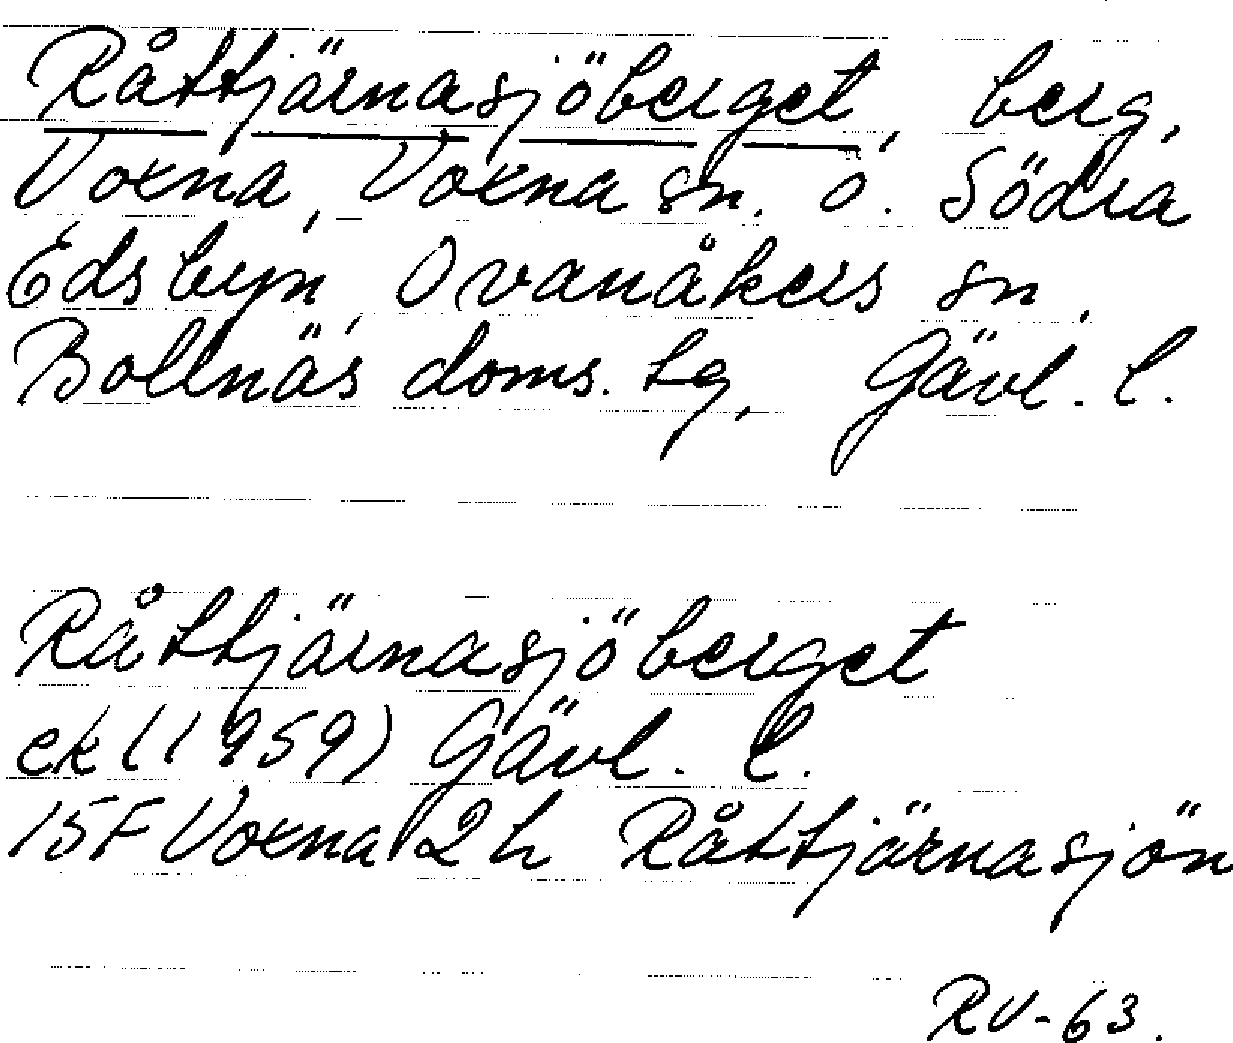 Råttjärnasjöberget, berg,
Voxna, Voxna sn. o. Södra
Edsbyn, Ovanåkers sn,
Bollnäs doms. tg, Gävl. l.
Råttjärnasjöberget
ek (1959) Gävl. l.
15F Voxna 2h Råttjärnasjön
RV-63.